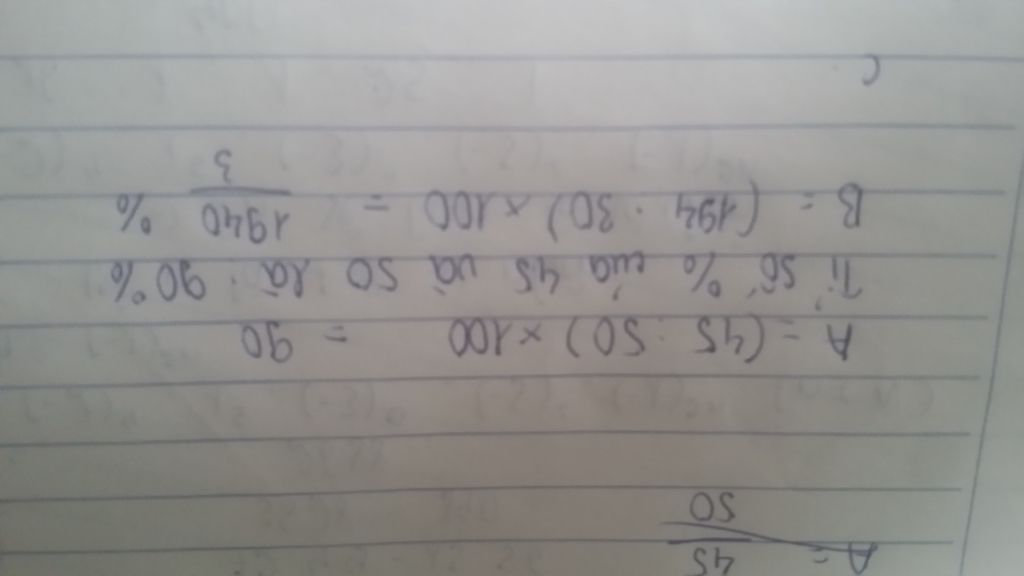 A = 45/50
A = (45 : 50) × 100 = 90
Tỉ số % của 45 và 50 là : 90%
B = (194 : 30) × 100 = 1940/3 %
C.